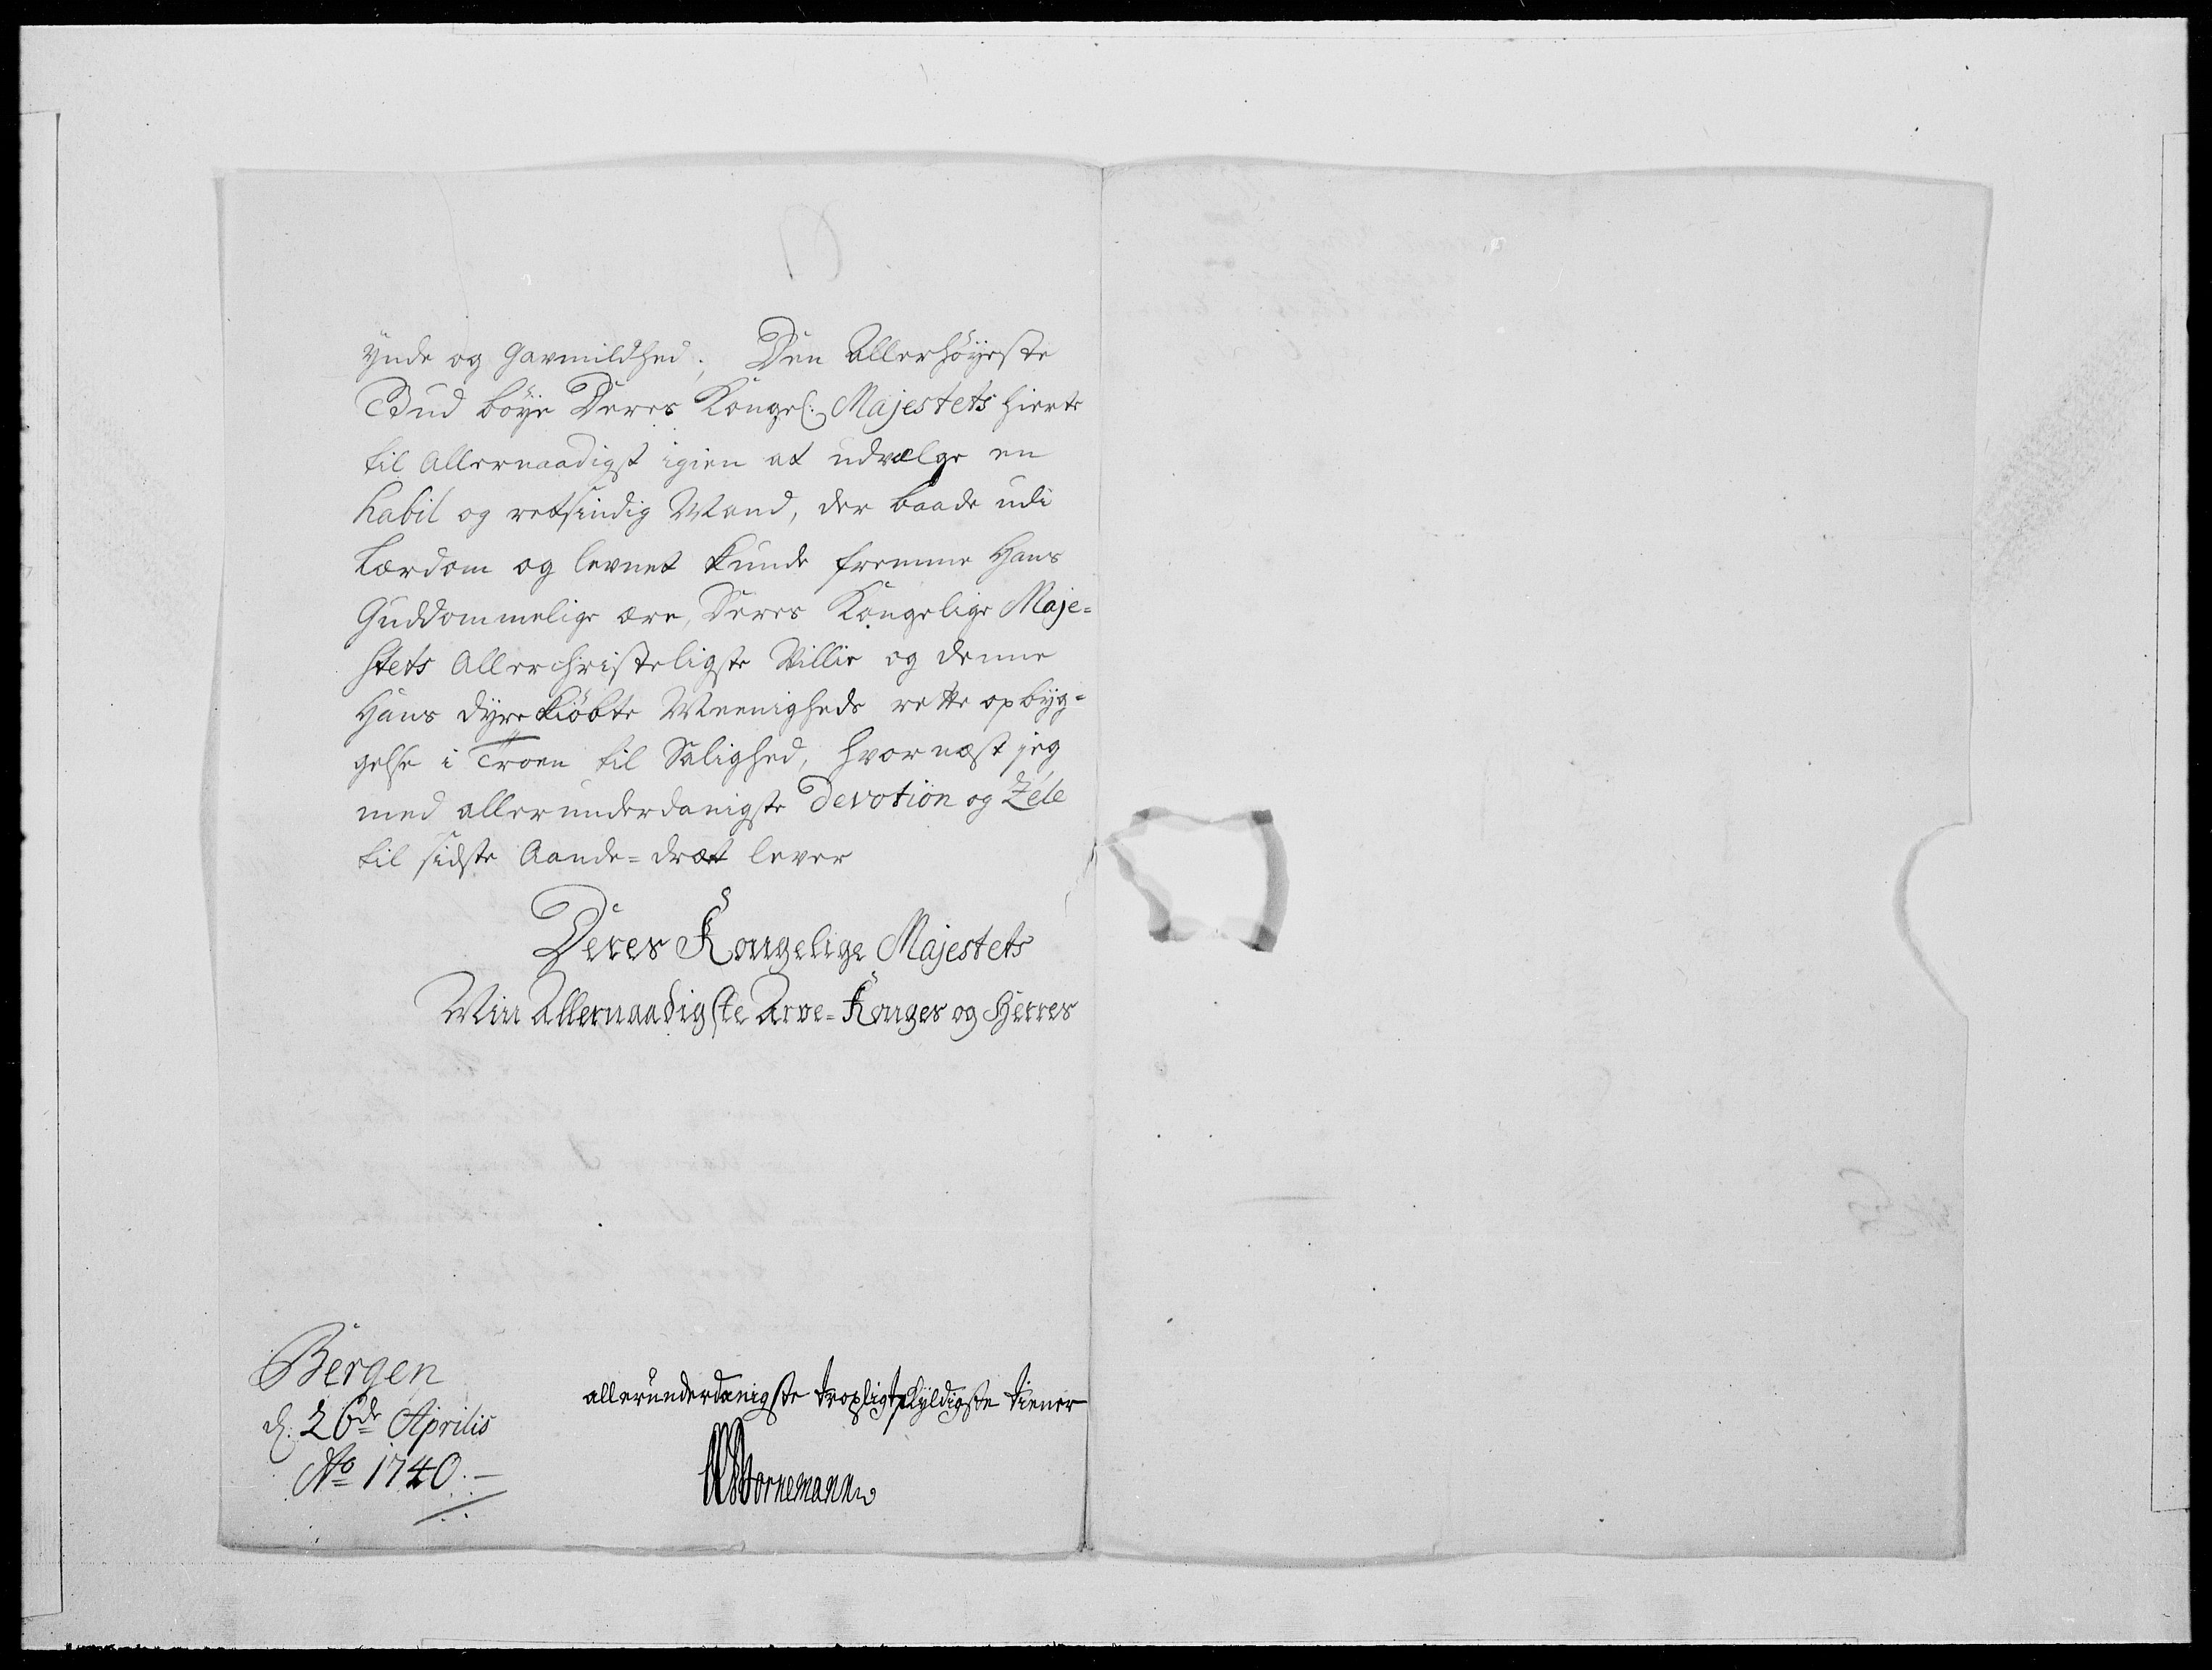 Ynde og Gavmildhed; Den Allerhöyeste
Gud böye Deres Kongel: Majestets Hierte
til Allernaadigst igien at udvælge en
habil og retsindig Mand, der baade udi
Lærdom og levnet kunde fremme Hans
Guddommelige ære, Deres Kongelige Maje=
stets Allerchristeligste Villie og denne
Hans dyrekiöbte Meenigheds rette opbyg=
gelse i Troen til Salighed, hvornæst jeg
med allerunderdanigste Devotion og Zéle
til sidste Aande=dræt lever
Deres Kongelige Majestets
Min Allernaadigste Arve=Konges og Herres
Bergen
d: 26de Aprilis
Ao 1740:
allerunderdanigste tropligtskyldigste tiener
Bornemann